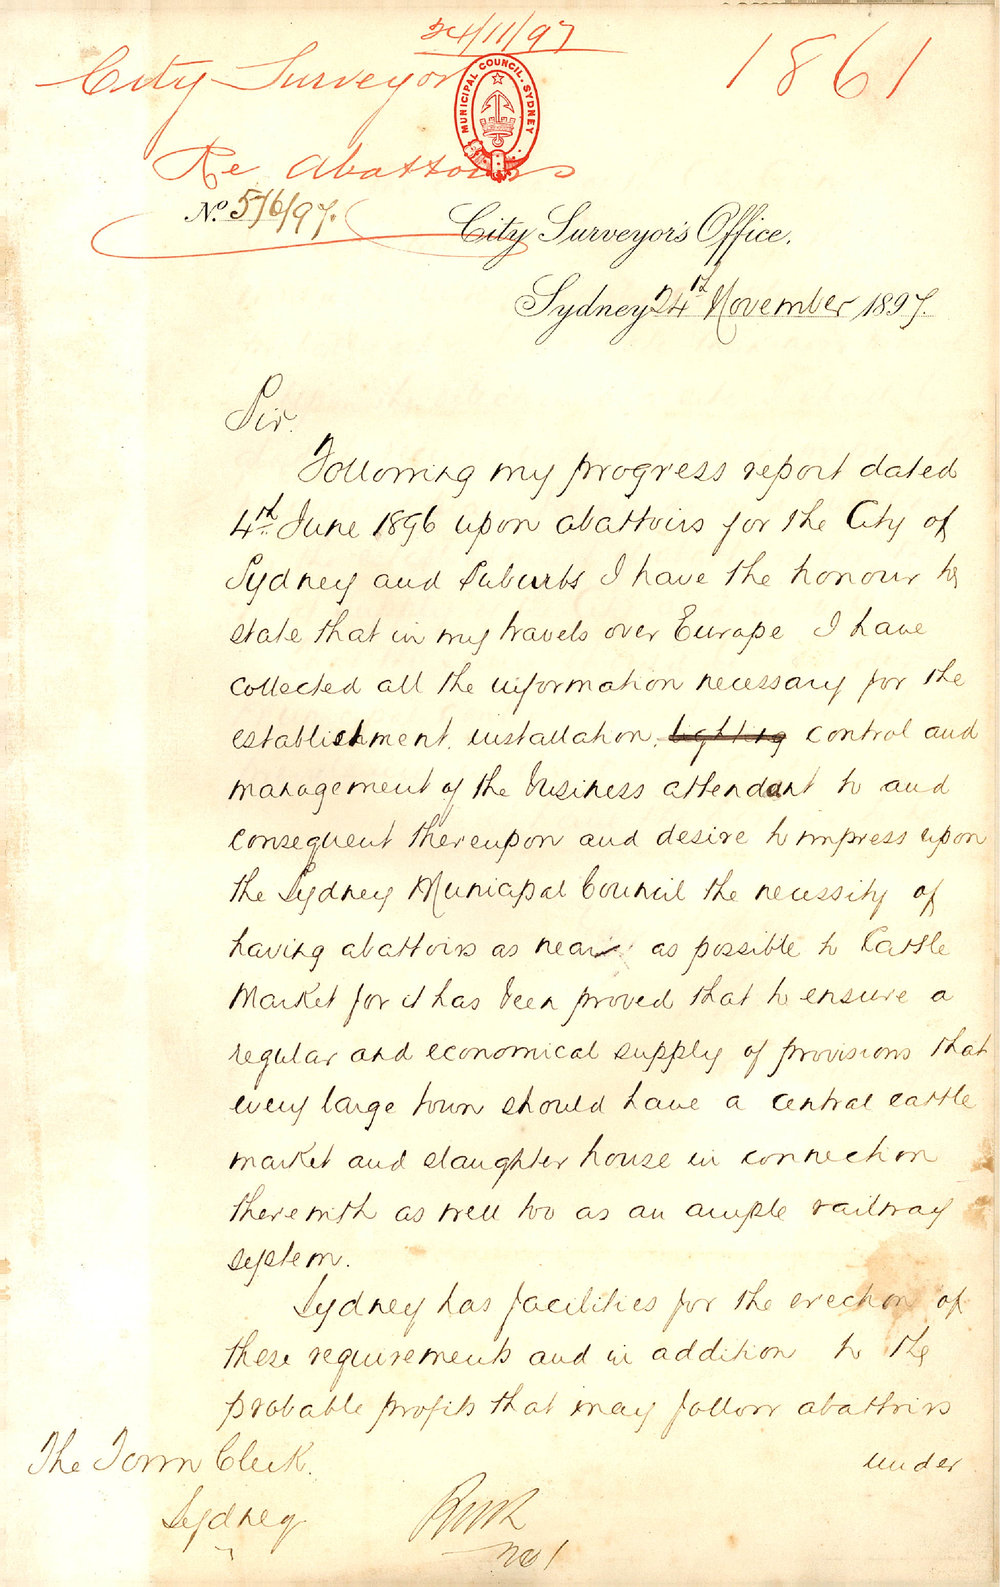 24/11/97
City Surveyor
1861
MUNICIPAL COUNCIL. SYDNEY
Re Abattoirs
No. 576/97.
City Surveyor's Office,
Sydney 24th November 1897.
Sir.
Following my progress report dated
4th June 1896 upon abattoirs for the City of
Sydney and Suburbs I have the honour to
state that in my travels over Europe I have
collected all the information necessary for the
establishment, installation, lighting control and
management of the business attendant to and
consequent thereupon and desire to impress upon
the Sydney Municipal Council the necessity of
having abattoirs as near as possible to Cattle
Market for it has been proved that to ensure a
regular and economical supply of provisions that
every large town should have a central cattle
market and slaughter house in connection
therewith as well too as an ample railway
system.
Sydney has facilities for the erection of
these requirements and in addition to the
probable profits that may follow abattoirs
under
The Town Clerk.
Sydney
No 1